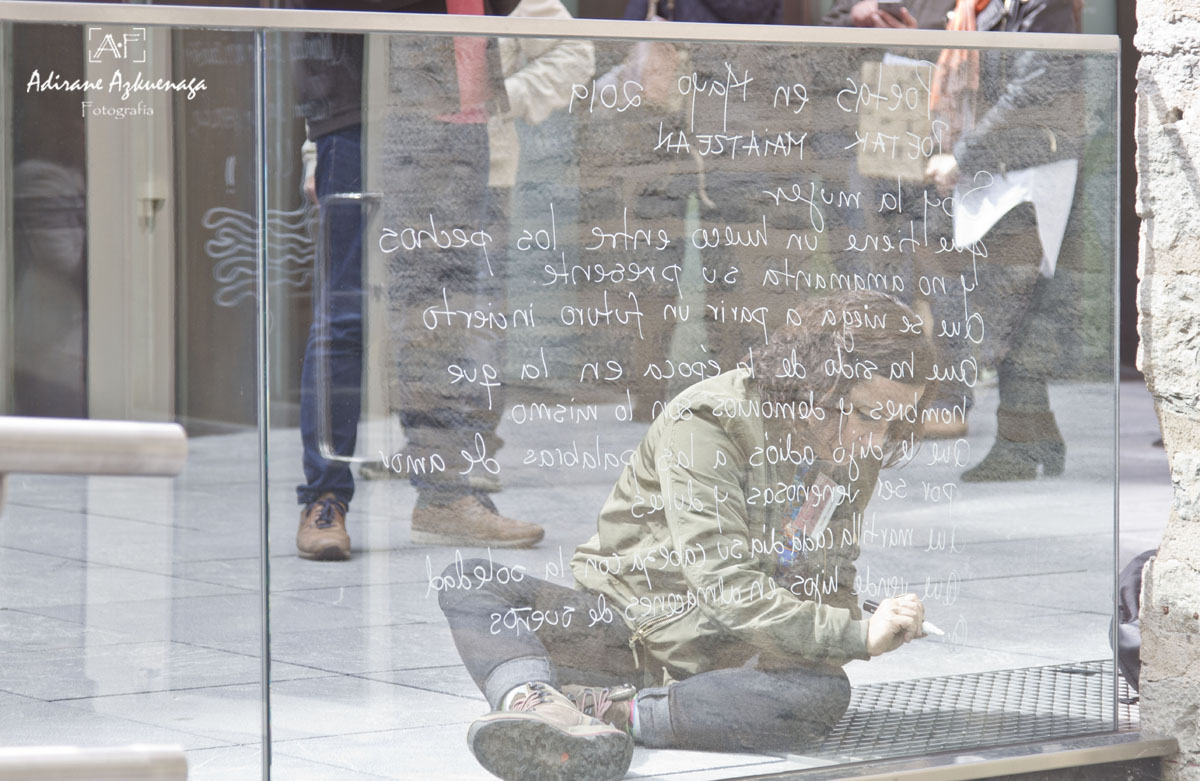 A·F
Adirane Azkuenaga
Fotografía
Poetas en Mayo 2019
POETAK MAIATZEAN
Soy la mujer
que tiene un hueco entre los pechos
y no amamanta su presente.
Que se niega a parir un futuro incierto
Que ha sido de la época en la que
hombres y demonios son lo mismo
Que le dijo adiós a las palabras de amor
por ser venenosas y dulces
Que martilla cada día su cabeza con la soledad
Que vende hijos en almacenes de sueños